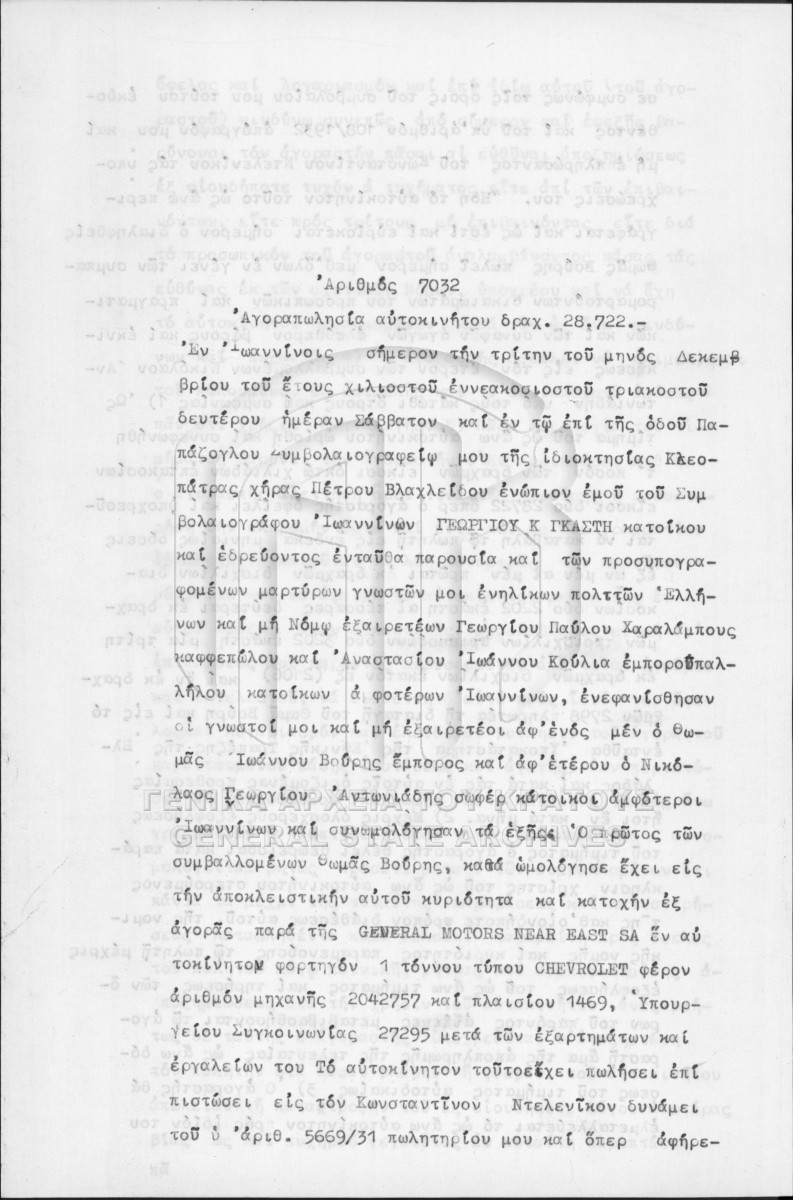 Ἀριθμός 7032
Ἀγοραπωλησία αὐτοκινήτου δραχ. 28.722.-
Ἐν Ἰωαννίνοις σήμερον τήν τρίτην τοῦ μηνός Δεκεμβ
βρίου τοῦ ἔτους χιλιοστοῦ ἐννεακοσιοστοῦ τριακοστοῦ
δευτέρου ἡμέραν Σάββατον καί ἐν τῷ ἐπί τῆς ὁδοῦ Πα-
πάζογλου Συμβολαιογραφείῳ μου τῆς ἰδιοκτησίας Κλεο-
πάτρας χήρας Πέτρου Βλαχλείδου ἐνώπιον ἐμοῦ τοῦ Συμ
βολαιογράφου Ἰωαννίνων ΓΕΩΡΓΙΟΥ Κ ΓΚΑΣΤΗ κατοίκου
καί ἑδρεύοντος ἐνταῦθα παρουσία καί τῶν προσυπογρα-
φομένων μαρτύρων γνωστῶν μοι ἐνηλίκων πολττῶν Ἑλλή-
νων καί μή Νόμῳ ἐξαιρετέων Γεωργίου Παύλου Χαραλάμπους
καφφεπώλου καί Ἀναστασίου Ἰωάννου Κούλια ἐμποροϋπαλ-
λήλου κατοίκων ἀ φοτέρων Ἰωαννίνων, ἐνεφανίσθησαν
οἱ γνωστοί μοι καί μή ἐξαιρετέοι ἀφ'ἑνός μέν ὁ Θω-
μᾶς Ἰωάννου Βούρης ἔμπορος καί ἀφ'ἑτέρου ὁ Νικό-
λαος Γεωργίου Ἀντωνιάδης σωφέρ κάτοικοι ἀμφότεροι
ΓΕΝΙΚΑ ΑΡΧΕΙΑ ΤΟΥ ΚΡΑΤΟΥΣ
Ἰωαννίνων καί συνωμολόγησαν τά ἑξῆς. Ὁ πρῶτος τῶν
GENERAL STATE ARCHIVES
συμβαλλομένων Θωμᾶς Βούρης, καθά ὡμολόγησε ἔχει εἰς
τήν ἀποκλειστικήν αὐτοῦ κυριότητα καί κατοχήν ἐξ
ἀγορᾶς παρά τῆς GENERAL MOTORS NEAR EAST SA ἕν αὐ
τοκίνητον φορτηγόν 1 τόννου τύπου CHEVROLET φέρον
ἀριθμόν μηχανῆς 2042757 καί πλαισίου 1469, Ὑπουρ-
γείου Συγκοινωνίας 27295 μετά τῶν ἐξαρτημάτων καί
ἐργαλείων του Τό αὐτοκίνητον τοῦτοεἴχει πωλήσει ἐπί
πιστώσει εἰς τόν Κωνσταντῖνον Ντελενίκον δυνάμει
τοῦ ὑ 'ἀριθ. 5669/31 πωλητηρίου μου καί ὅπερ ἀφήρε-